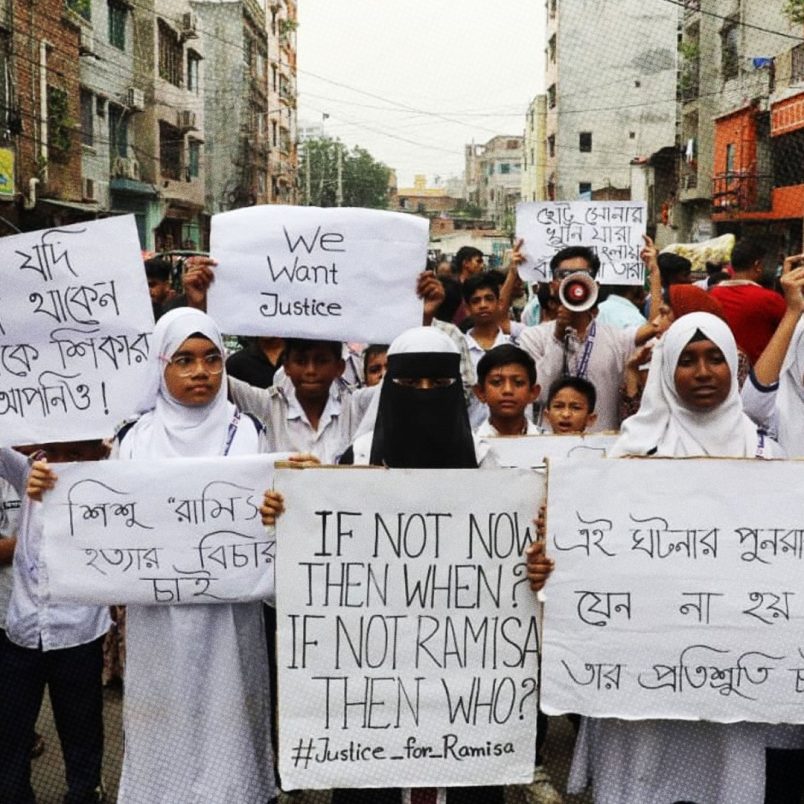 যদি
থাকেন
শিকার
আপনিও!
We
Want
Justice
ছোট সোনার
খুনি যারা
তারা
শিশু "রামিসা
হত্যার বিচার
চাই
IF NOT NOW
THEN WHEN?
IF NOT RAMISA
THEN WHO?
#Justice_for_Ramisa
এই ঘটনার
যেন না হয়
তার প্রতিশ্রুতি